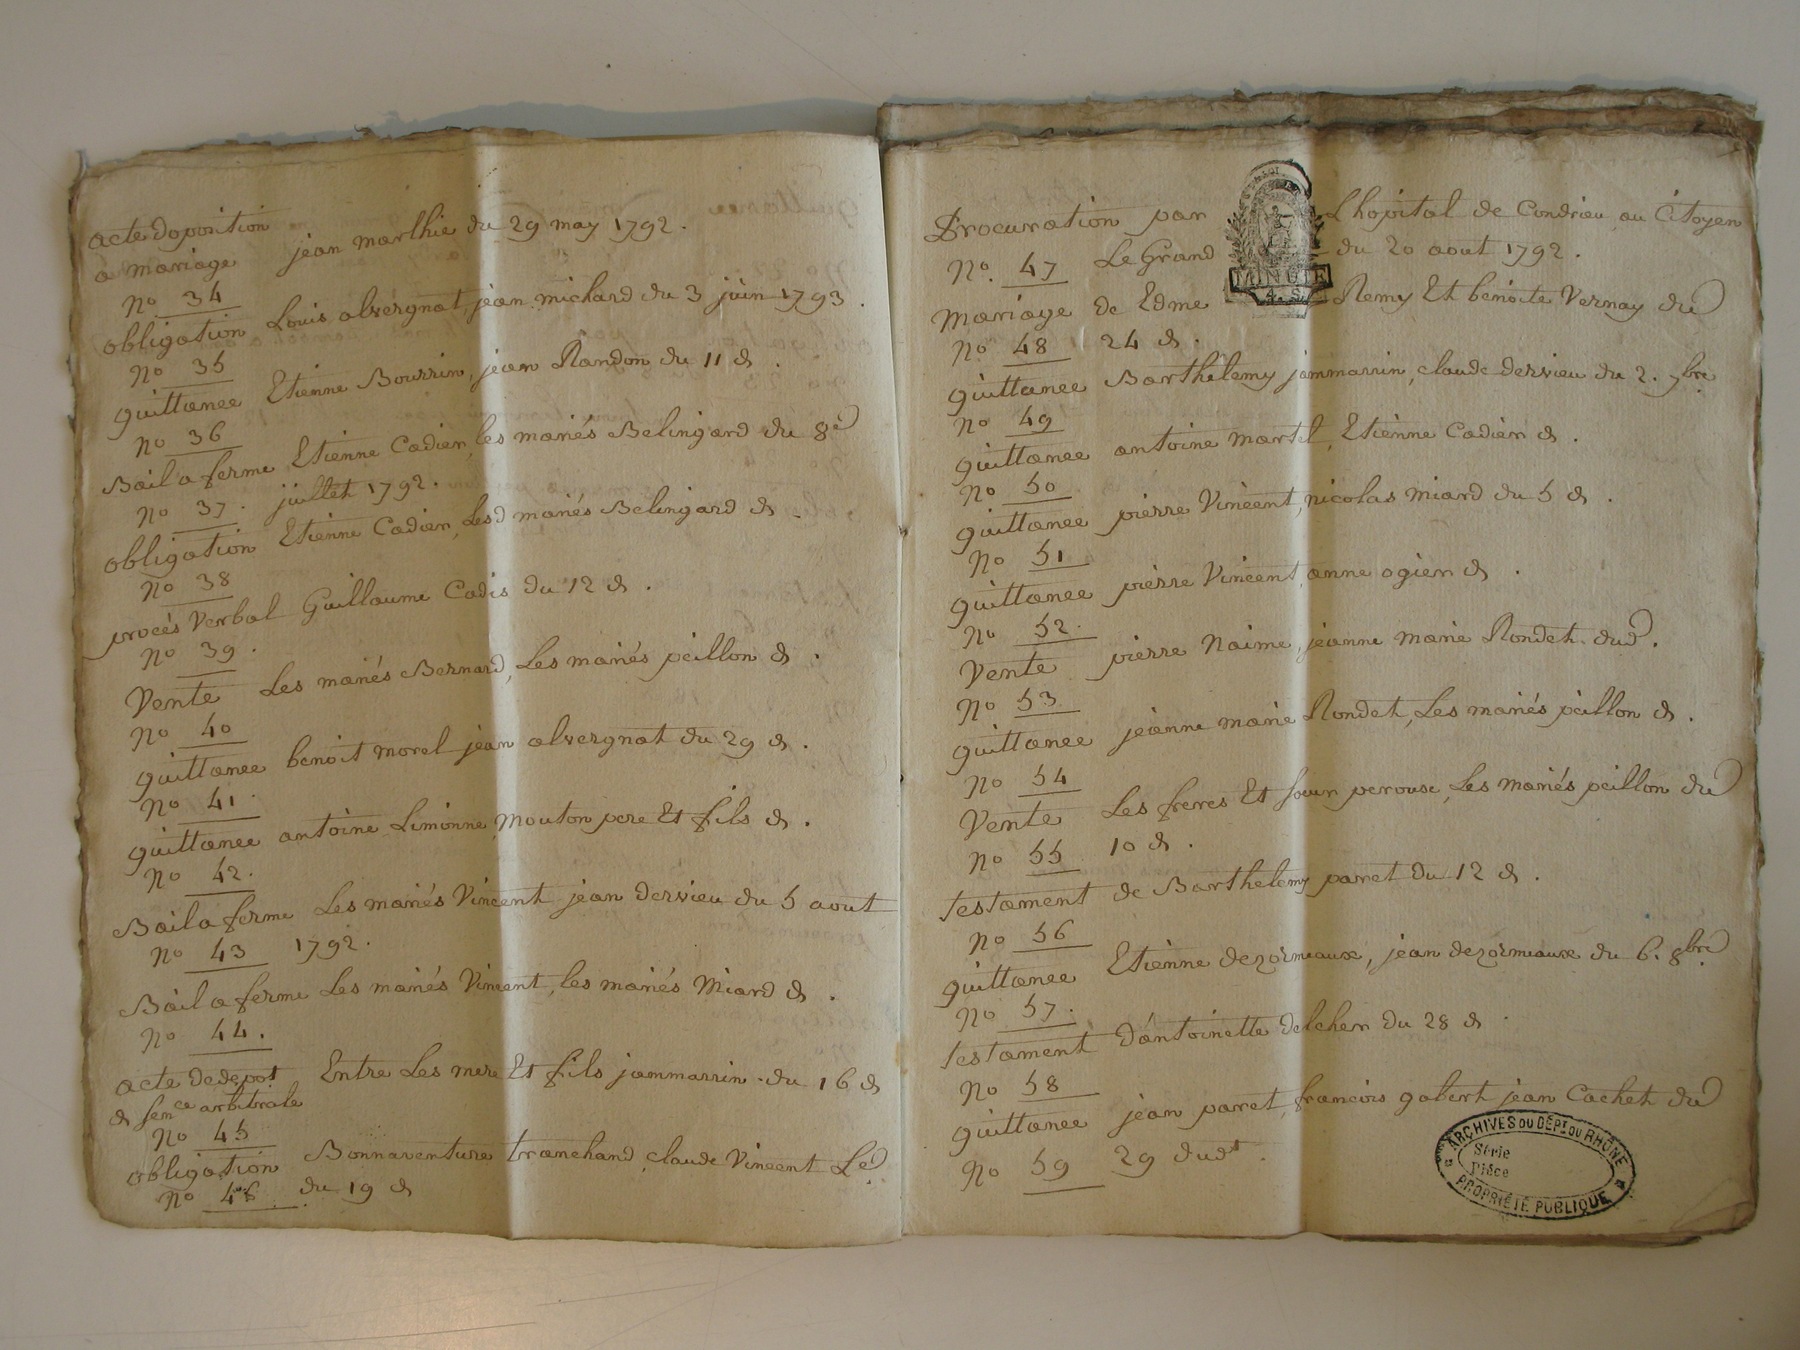 acte doposition
a mariage jean marthie du 29 may 1792.
No 34
obligation Louis alvergnat, jean michard du 3 juin 1793.
No 35
quittance Etienne Bourrin, jean Randon du 11 d.
No 36
Bail a ferme Etienne Cadier, les mariés Belingard du 8e
No 37. juillet 1792.
obligation Etienne Cadier, Lesd mariés Belingard d.
No 38
procés Verbal Guillaume Cadis du 12 d.
No 39.
Vente Les mariés Bernard, Les mariés peillon d.
No 40
quittance benoit morel jean alvergnat du 29 d.
No 41.
quittance antoine Limonne, Mouton pere Et fils d.
No 42.
Bail a ferme Les mariés Vincent jean dervieu du 5 aout
No 43 1792.
Bail a ferme Les mariés Vincent, les mariés Miard d.
No 44.
acte de depot Entre Les mere Et fils jammarrin du 16 d
d sence arbitrale
No 45
obligation Bonnaventure tranchand, claude Vincent Led.
No 46. du 19 d
Procuration par Lhopital de Condrieu au Citoyen
No. 47 Le Grand du 20 aout 1792.
MINUTE
4. S.
Mariage de Edme Remy Et benoite Vernay du
No 48 24 d.
quittance Barthelemy jammarrin, claude dervieu du 2. 7bre
No 49
quittance antoine martel, Etienne Cadier d.
No 50
quittance pierre Vincent, nicolas miard du 5 d.
No 51
quittance pierre Vincent, anne ogier d.
No 52.
Vente pierre Naime, jeanne marie Rondet dud.
No 53
quittance jeanne marie Rondet, Les mariés peillon d.
No 54
Vente Les freres Et soeur perouse, Les mariés peillon du
No 55 10 d.
testament de Barthelemy parret du 12 d.
No 56
quittance Etienne dezormeaux, jean dezormeaux du 6. 8bre
No 57.
testament D'antoinette delcher du 28 d.
No 58
quittance jean parret, francois gabert jean Cachet du
No 59 29 dudt.
ARCHIVES DU DÉPT. DU RHÔNE
Série
Pièce
PROPRIÉTÉ PUBLIQUE